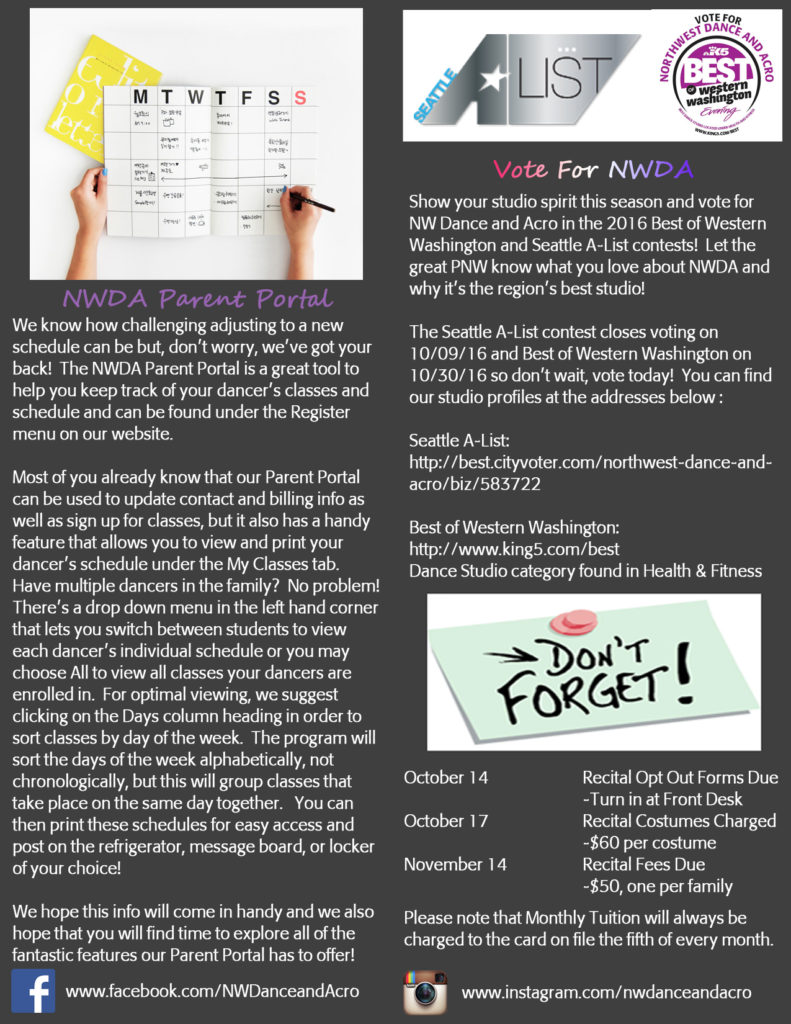 M T W T F S S
NWDA Parent Portal
We know how challenging adjusting to a new
schedule can be but, don't worry, we've got your
back!  The NWDA Parent Portal is a great tool to
help you keep track of your dancer's classes and
schedule and can be found under the Register
menu on our website.
Most of you already know that our Parent Portal
can be used to update contact and billing info as
well as sign up for classes, but it also has a handy
feature that allows you to view and print your
dancer's schedule under the My Classes tab.
Have multiple dancers in the family?  No problem!
There's a drop down menu in the left hand corner
that lets you switch between students to view
each dancer's individual schedule or you may
choose All to view all classes your dancers are
enrolled in.  For optimal viewing, we suggest
clicking on the Days column heading in order to
sort classes by day of the week.  The program will
sort the days of the week alphabetically, not
chronologically, but this will group classes that
take place on the same day together.   You can
then print these schedules for easy access and
post on the refrigerator, message board, or locker
of your choice!
We hope this info will come in handy and we also
hope that you will find time to explore all of the
fantastic features our Parent Portal has to offer!
f www.facebook.com/NWDanceandAcro
SEATTLE A LIST
VOTE FOR
NORTHWEST DANCE AND ACRO
KING5
BEST
of western
washington
Evening
WWW.KING5.COM/BEST
Vote For NWDA
Show your studio spirit this season and vote for
NW Dance and Acro in the 2016 Best of Western
Washington and Seattle A-List contests!  Let the
great PNW know what you love about NWDA and
why it's the region's best studio!
The Seattle A-List contest closes voting on
10/09/16 and Best of Western Washington on
10/30/16 so don't wait, vote today!  You can find
our studio profiles at the addresses below :
Seattle A-List:
http://best.cityvoter.com/northwest-dance-and-
acro/biz/583722
Best of Western Washington:
http://www.king5.com/best
Dance Studio category found in Health & Fitness
DON'T
FORGET!
October 14 Recital Opt Out Forms Due
-Turn in at Front Desk
October 17 Recital Costumes Charged
-$60 per costume
November 14 Recital Fees Due
-$50, one per family
Please note that Monthly Tuition will always be
charged to the card on file the fifth of every month.
www.instagram.com/nwdanceandacro